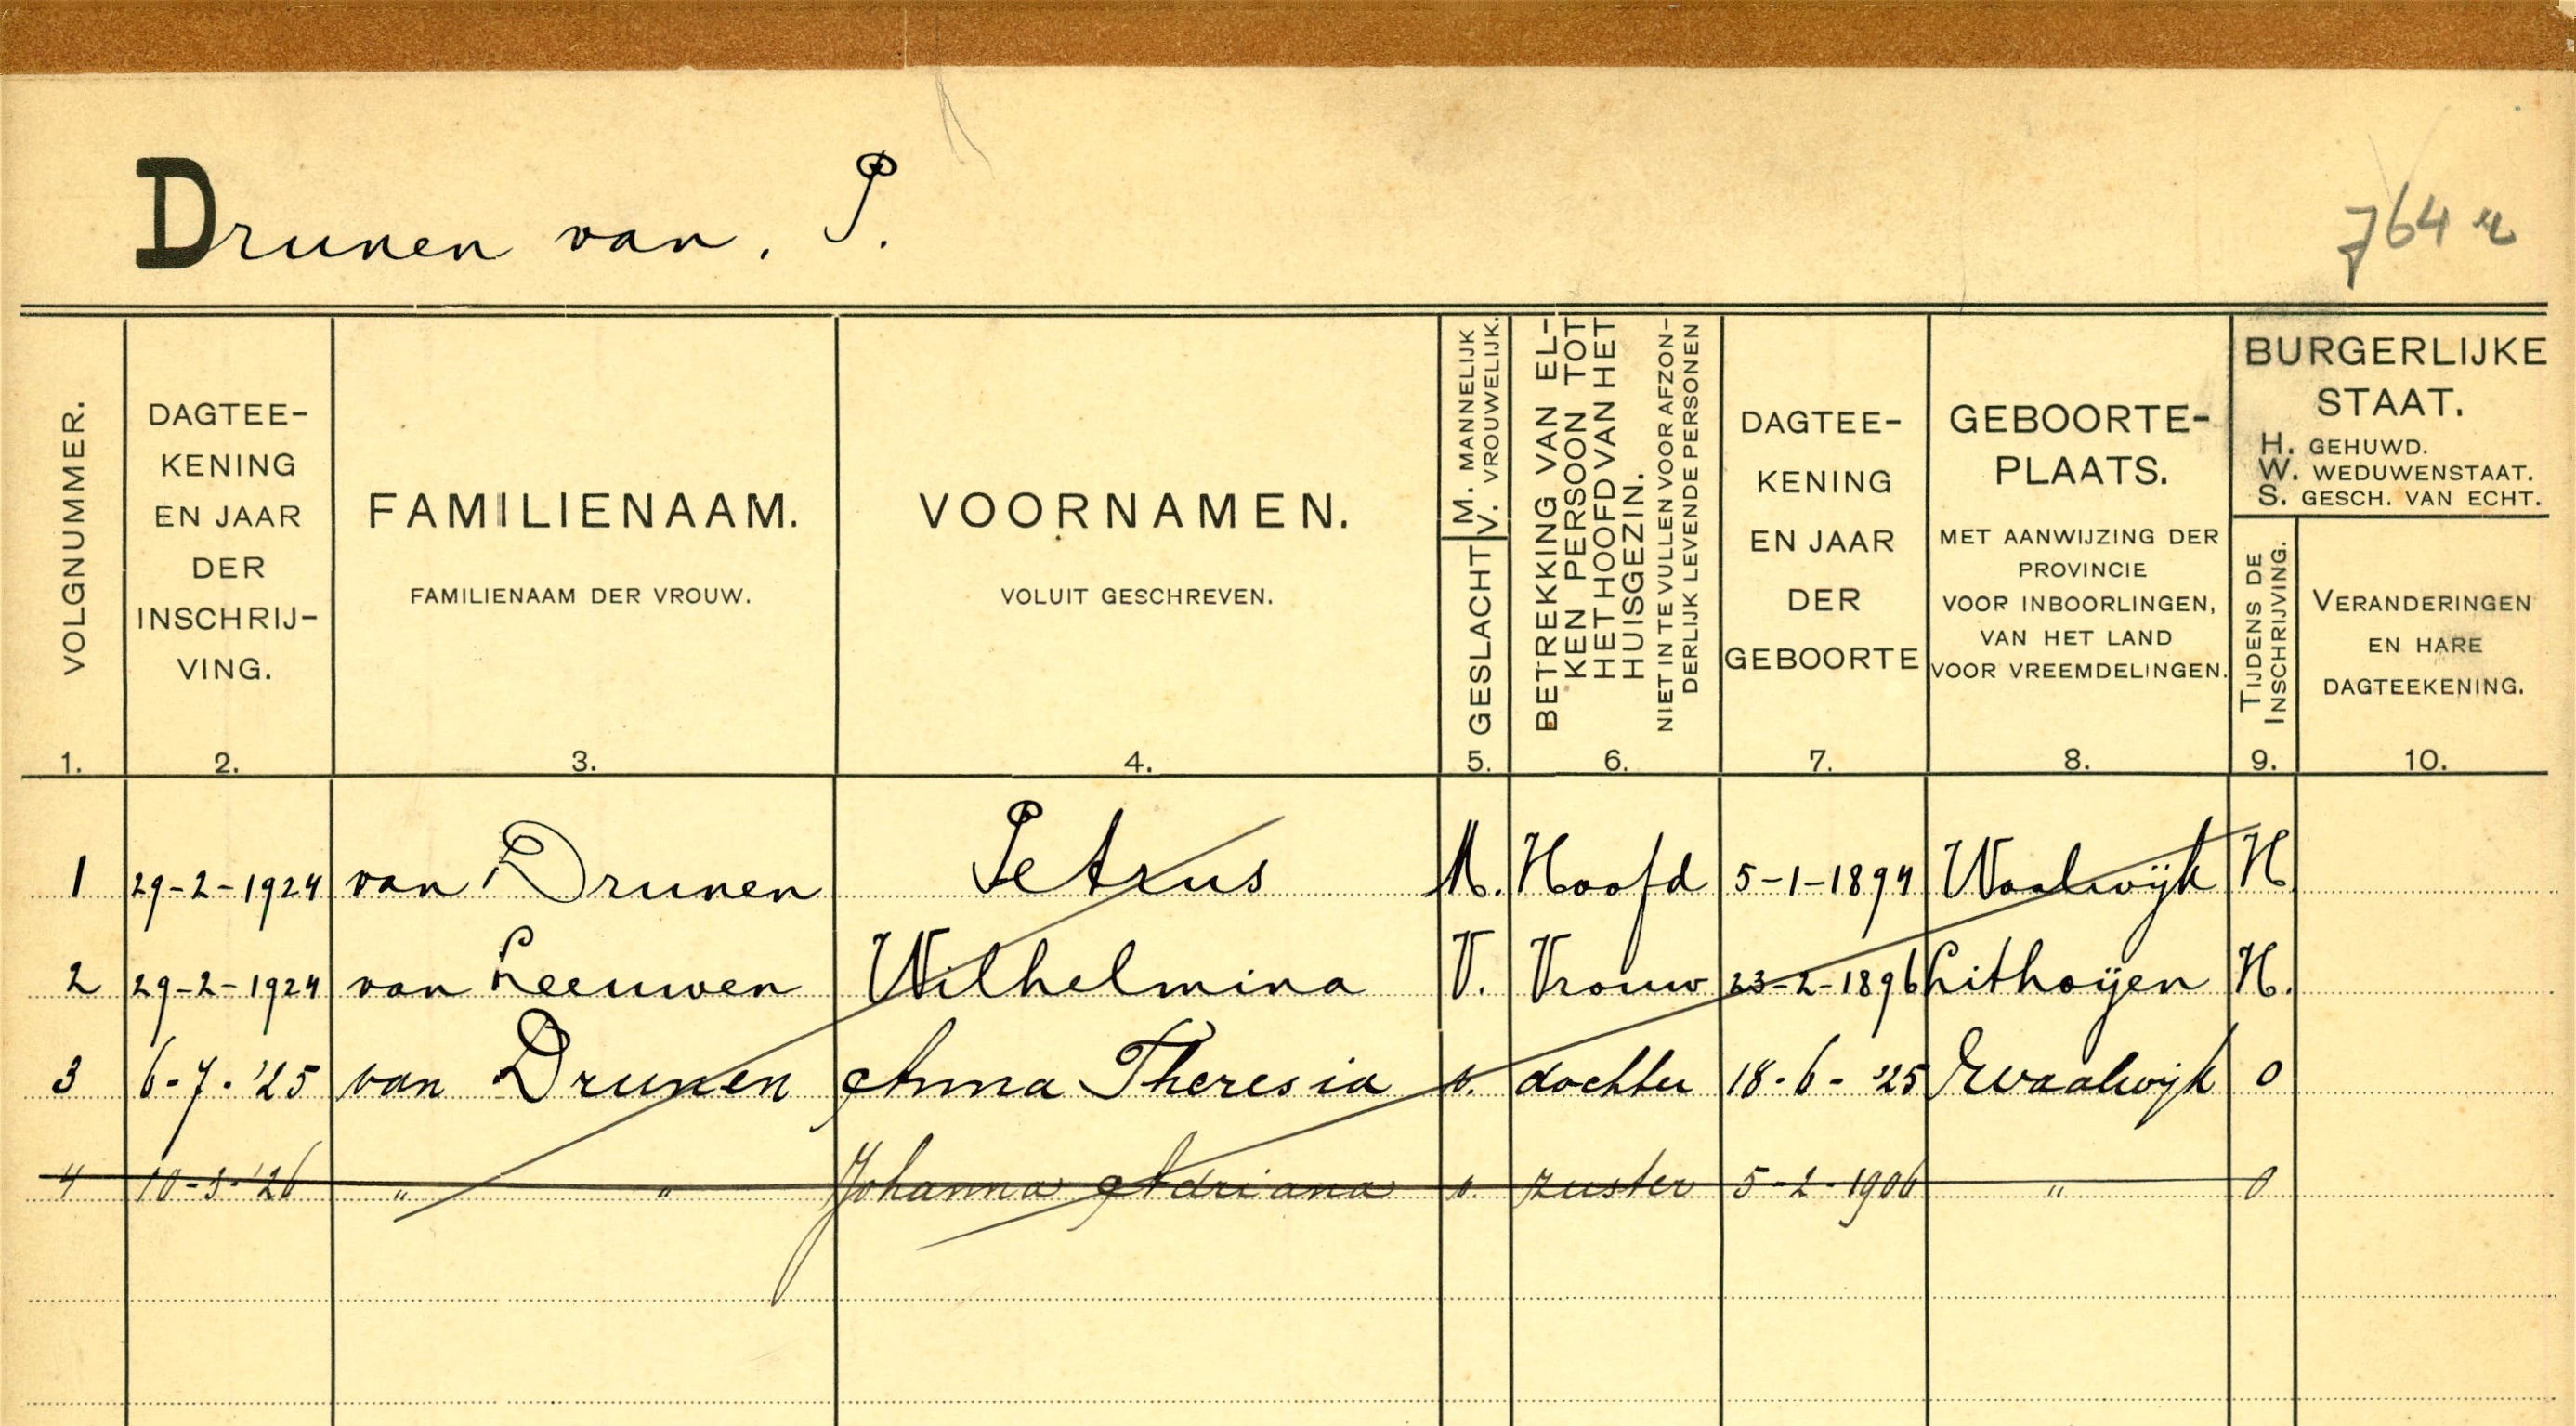 Drunen van. P.
764 r
VOLGNUMMER.
1.
DAGTEE-
KENING
EN JAAR
DER
INSCHRIJ-
VING.
2.
FAMILIENAAM.
FAMILIENAAM DER VROUW.
3.
VOORNAMEN.
VOLUIT GESCHREVEN.
4.
M. MANNELIJK
V. VROUWELIJK.
GESLACHT
5.
BETREKKING VAN EL-
KEN PERSOON TOT
HET HOOFD VAN HET
HUISGEZIN.
NIET IN TE VULLEN VOOR AFZON-
DERLIJK LEVENDE PERSONEN
6.
DAGTEE-
KENING
EN JAAR
DER
GEBOORTE
7.
GEBOORTE-
PLAATS.
MET AANWIJZING DER
PROVINCIE
VOOR INBOORLINGEN,
VAN HET LAND
VOOR VREEMDELINGEN.
8.
BURGERLIJKE
STAAT.
H. GEHUWD.
W. WEDUWENSTAAT.
S. GESCH. VAN ECHT.
TIJDENS DE
INSCHRIJVING.
9.
VERANDERINGEN
EN HARE
DAGTEEKENING.
10.
1 29-2-1924 van Drunen Petrus M. Hoofd 5-1-1894 Waalwijk H
2 29-2-1924 van Leeuwen Wilhelmina V. Vrouw 23-2-1896 Lithoijen H.
3 6-7-'25 van Drunen Anna Theresia v. dochter 18-6-'25 Waalwijk O
4 10-3-'26 " " Johanna Adriana v. zuster 5-2-1906 " O